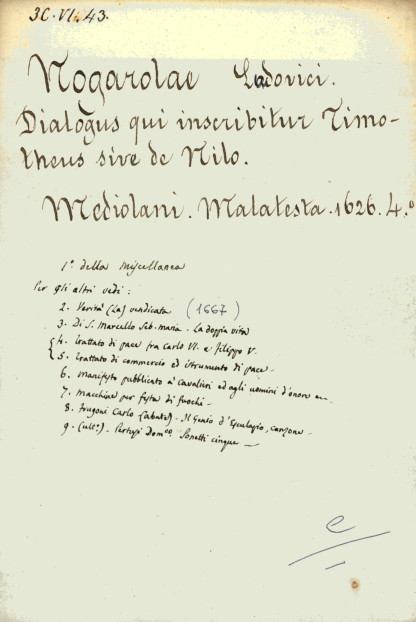 3C. VI. 43.
Nogarolae Ludovici.
Dialogus qui inscribitur Timo-
theus sive de Nilo.
Mediolani. Malatesta. 1626. 4.°
1° della Miscellanea
Per gli altri vedi:
2. Verità (La) vendicata (1667)
3. Di S. Marcello Seb. Maria - La doppia vita
4. Trattato di pace fra Carlo VI. e Filippo V.
5. Trattato di commercio ed istrumento di pace -
6. Manifesto pubblicato a' cavalieri ed agli uomini d'onore
7. Macchine per festa di fuochi -
8. Frugoni Carlo (abate) - Il Genio d'Esculapio, canzone -
9. (ult°) - Dom.co Sonetti cinque -
e